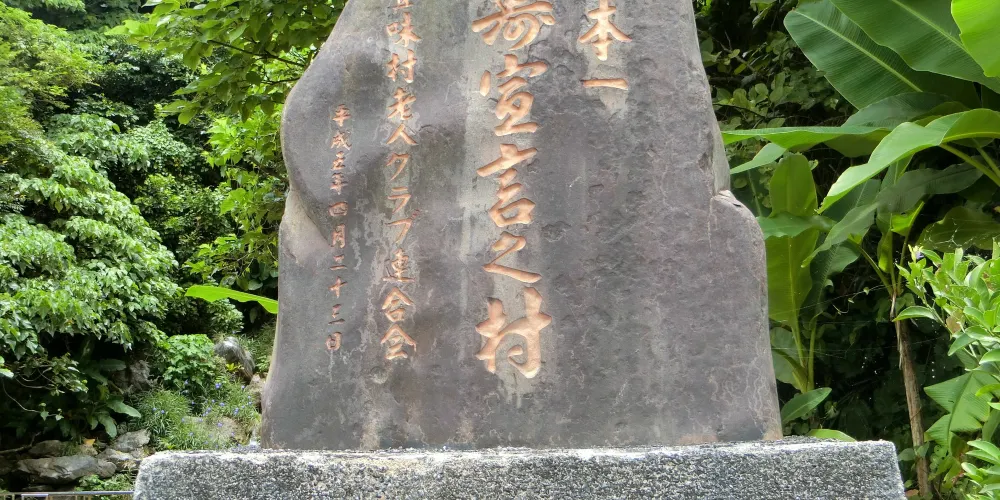 本一
寿宣言之村
味村老人クラブ連合会
平成五年四月二十三日